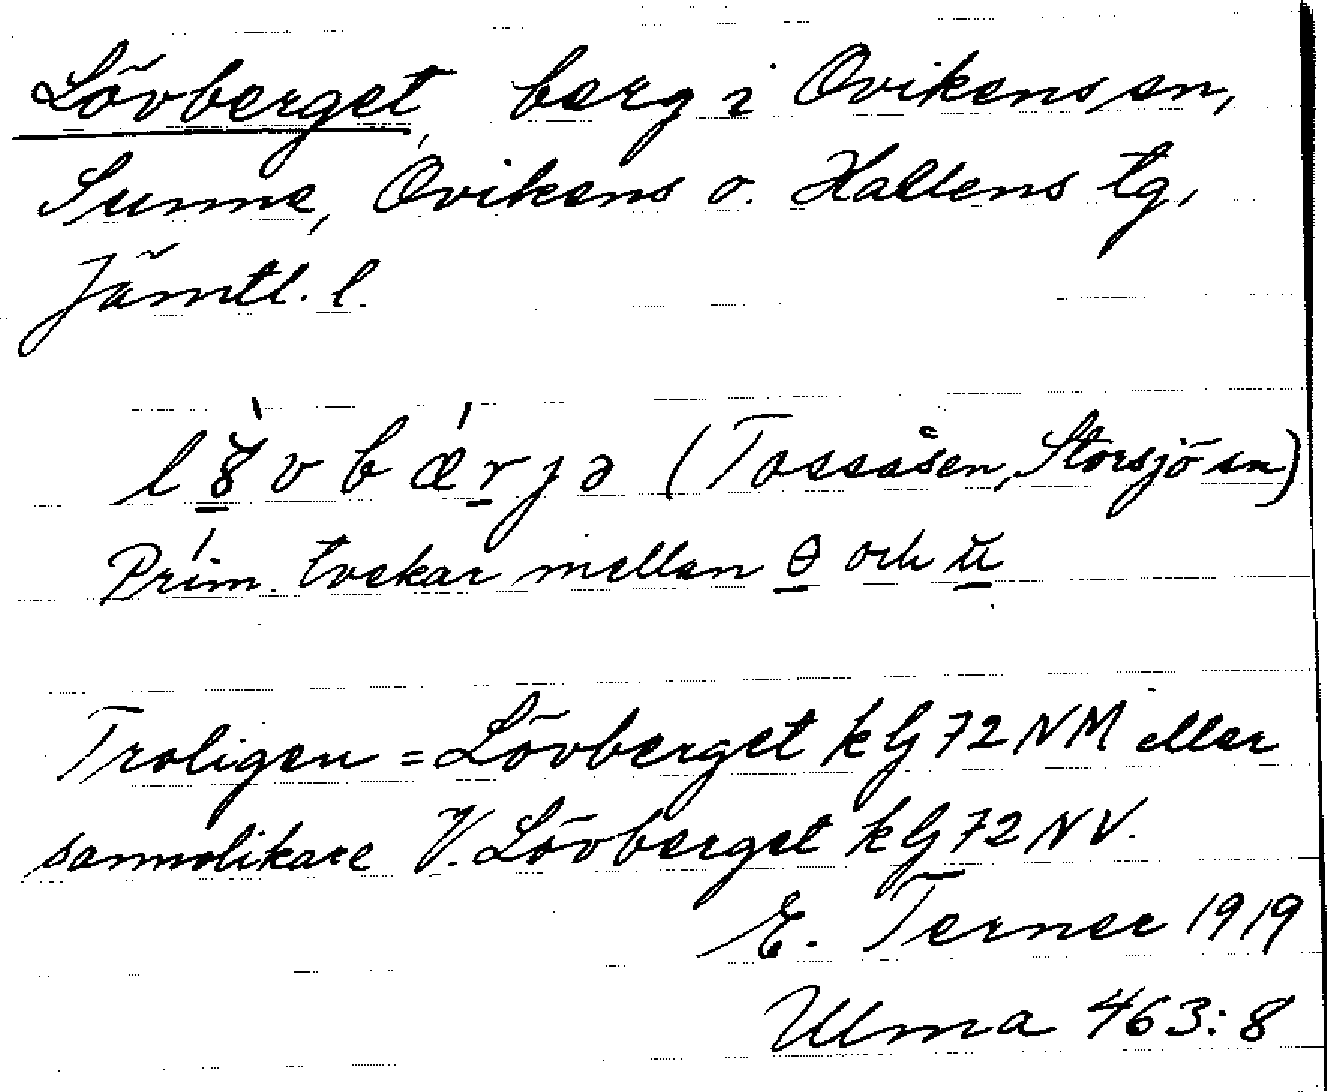 Lövberget, berg i Ovikens sn,
Sunne, Ovikens o. Hallens tg,
Jämtl. l.
(Tossåsen, Storsjö sn)
Prim. tvekar mellan ө och ŭ
Troligen = Lövberget k bj 72 NM eller
sannolikare V. Lövberget k bj 72 NV.
E. Terner 1919
Ulma 463:8